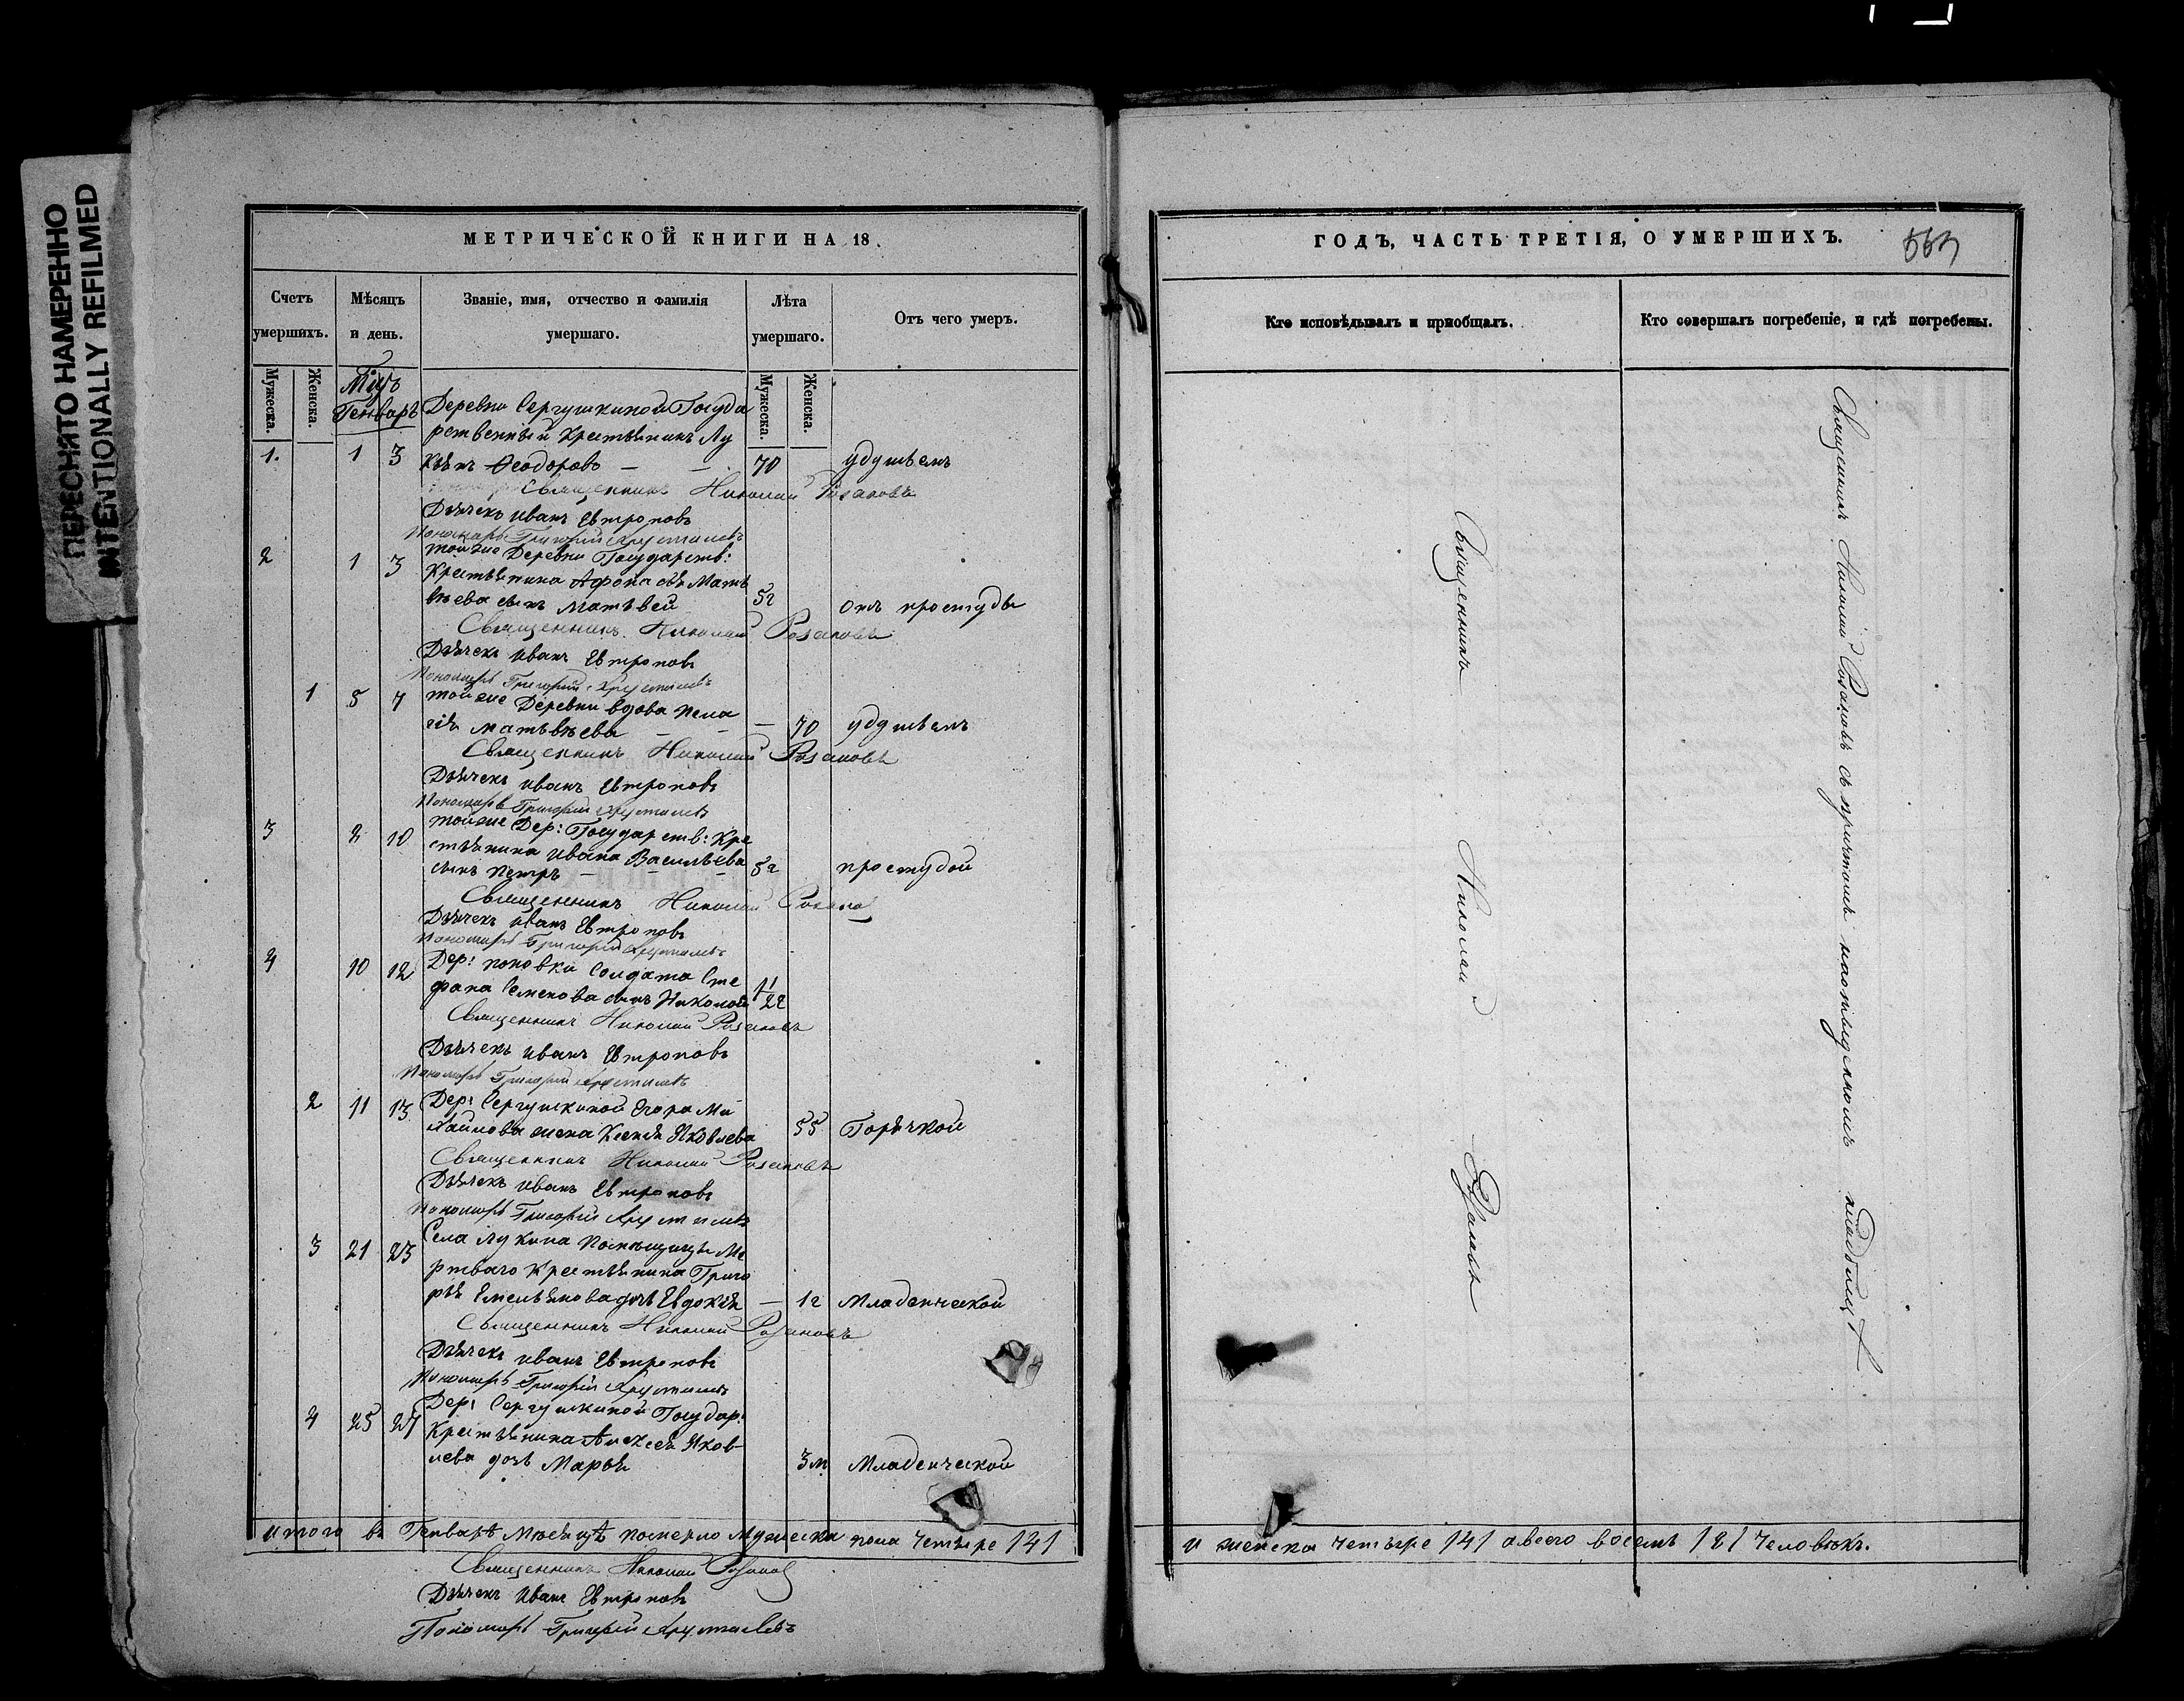 ПЕРЕСНЯТО НАМЕРЕННО
INTENTIONALLY REFILMED
МЕТРИЧЕСКОЙ КНИГИ НА 18
Счетъ умершихъ.
Мѣсяцъ и день.
Званіе, имя, отчество и фамилія умершаго.
Лѣта умершаго.
Отъ чего умеръ.
Мужеска.
Женска.
Мужеска.
Женска.
Генварь
Деревни Сергушкиной Госуда
рственный Крестьянинъ Лу
1. 1 3 кьянъ Ѳеодоровъ — — 70 удушьемъ
Священникъ Николай Розановъ
Дьячекъ Иванъ Евтроповъ
Пономарь Григорій Хрусталевъ
тойже Деревни Государств:
2 1 3 Крестьянина Афонасья Матв
ѣева сынъ Матвѣй 5г отъ простуды
Священникъ Николай Розановъ
Дьячекъ Иванъ Евтроповъ
Пономарь Григорій Хрусталевъ
1 5 7 тойже Деревни вдова Пела
гія Матвѣева — — — 70 удушьемъ
Священникъ Николай Розановъ
Дьячекъ Иванъ Евтроповъ
Пономарь Григорій Хрусталевъ
3 8 10 тойже Дер: Государств: Кре
стьянина Ивана Васильева
сынъ Петръ — — — 5г простудой
Священникъ Николай Розано
Дьячекъ Иванъ Евтроповъ
Пономарь Григорій Хрусталевъ
4 10 12 Дер: Поповки Солдата Сте
фана Семенова сынъ Николай
Священникъ Николай Розановъ
Дьячекъ Иванъ Евтроповъ
Пономарь Григорій Хрусталевъ
2 11 13 Дер: Сергушкиной Егора Ми
хайлова жена Ксенія Яковлева 55 Горячкой
Священникъ Николай Розановъ
Дьячекъ Иванъ Евтроповъ
Пономарь Григорій Хрусталевъ
3 21 23 Села Лукина Помѣщицы Ме
ртваго Крестьянина Григо
рья Емельянова дочь Евдокія — 1г Младенческой
Священникъ Николай Розановъ
Дьячекъ Иванъ Евтроповъ
Пономарь Григорій Хрусталевъ
4 25 27 Дер: Сергушкиной Государ:
Крестьянина Алексея Яков-
лева дочь Марья 3м Младенческой
Итого въ Генварѣ мѣсяцѣ померло мужеска пола четыре /4/
Священникъ Николай Розановъ
Дьячекъ Иванъ Евтроповъ
Пономарь Григорій Хрусталевъ
ГОДЪ, ЧАСТЬ ТРЕТІЯ, О УМЕРШИХЪ.
563
Кто исповѣдывалъ и пріобщалъ.
Кто совершалъ погребеніе, и гдѣ погребены.
Священникъ Николай Розановъ
Священникъ Николай Розановъ съ причтомъ на отведенномъ кладбищѣ
и женска четыре /4/ а всего восемь /8/ человѣкъ.